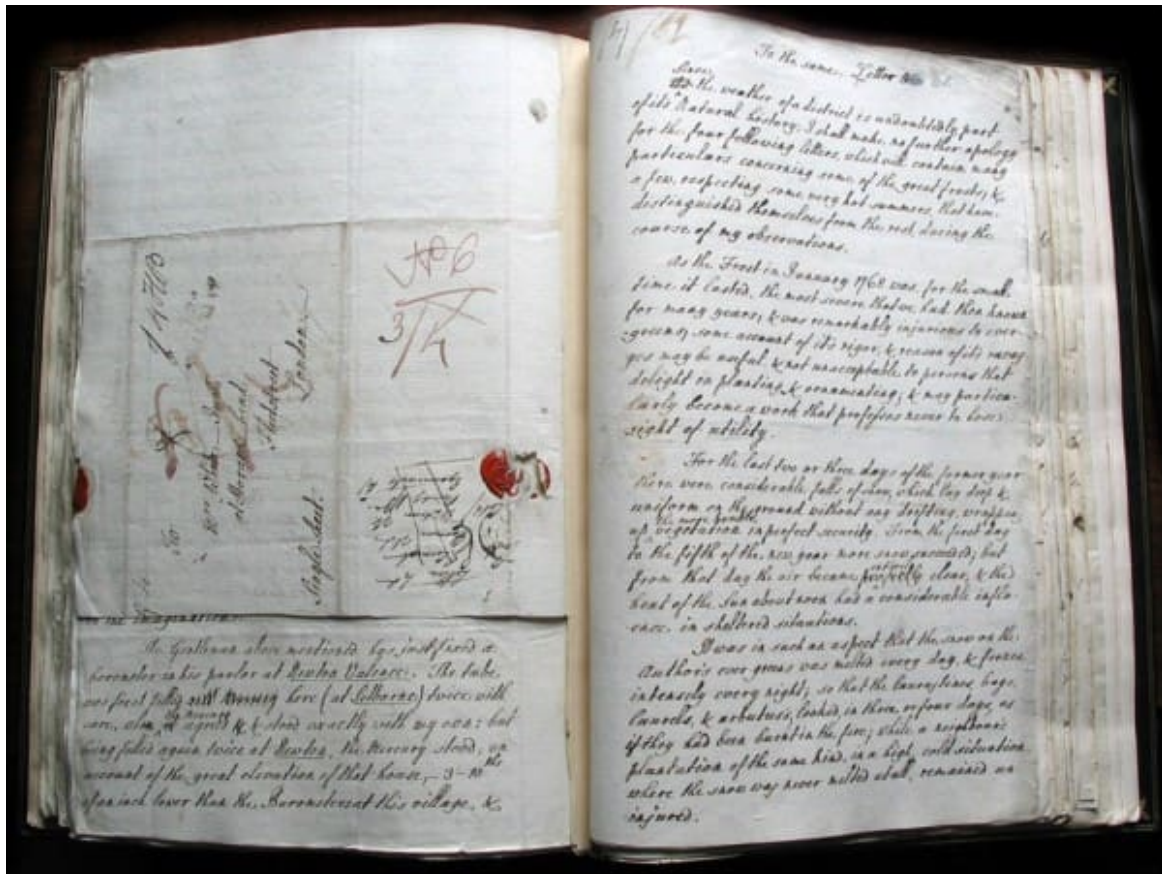 To
at Horace's head
Fleetstreet
London
Single sheet.
No 6
3/4
to the imagination.
The Gentleman above mentioned has just fixed a
barometer in his parlor at Newton Valence. The tube
was first filled here (at Selborne) twice with
care, when the mercury agreed & stood exactly with my own: but
being filled again twice at Newton, the Mercury stood, on
account of the great elevation of that house, 3–10ths
of an inch lower than the Barometers at this village, &
To the same. Letter
Since
the weather of a district is undoubtedly part
of its Natural history, I shall make no further apology
for the four following letters, which will contain many
particulars concerning some of the great frosts; &
a few respecting some very hot summers, that have
distinguished themselves from the rest during the
course of my observations.
As the Frost in January 1768 was, for the small
time it lasted, the most severe that we had then known
for many years; & was remarkably injurious to ever-
greens; some account of its rigor, & reason of its ravag
ges may be useful, & not unacceptable to persons that
delight in planting & ornamenting; & may particu-
larly become a work that professes never to lose
sight of utility.
For the last two or three days of the former year
there were considerable falls of snow, which lay deep &
uniform on the ground without any drifting, wrapping
up the more humble vegetation in perfect security. From the first day
to the fifth of the new year more snow succeeded; but
from that day the air became entirely clear, & the
heat of the Sun about noon had a considerable influ-
ence in sheltered situations.
It was in such an aspect that the snow on the
Author's evergreens was melted every day, & frozen
intensely every night; so that the laurustines, bays,
laurels, & arbutuses, looked, in three or four days, as
if they had been burnt in the fire; while a neighbour's
plantation of the same kind, in a high, cold situation
where the snow was never melted at all, remained un
injured.